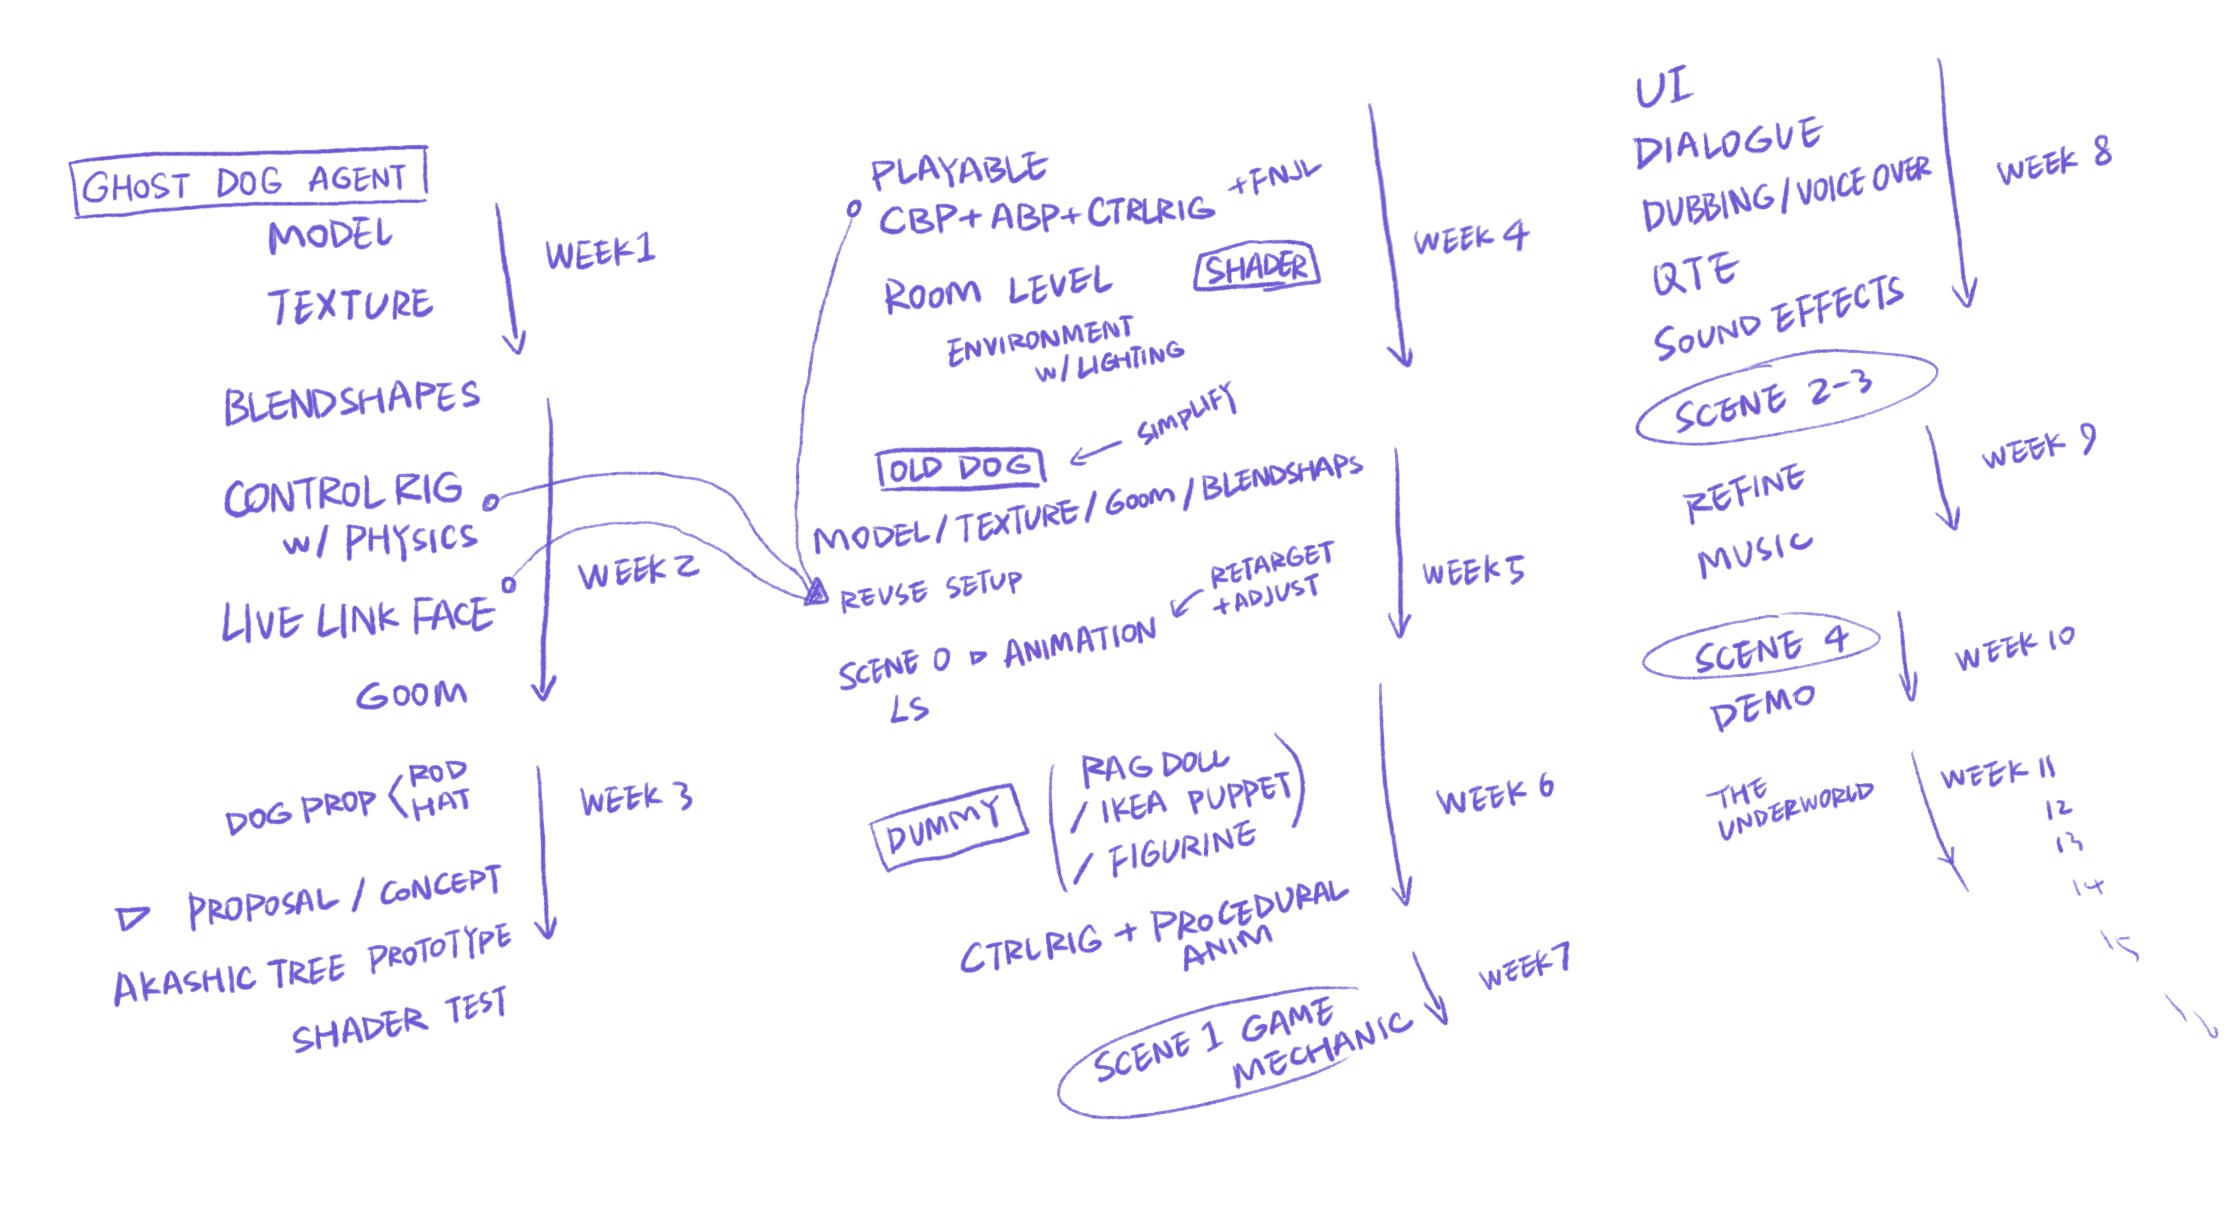 GHOST DOG AGENT
MODEL
TEXTURE
WEEK 1
BLENDSHAPES
CONTROL RIG
W/ PHYSICS
LIVE LINK FACE
GOOM
WEEK 2
DOG PROP
ROD
HAT
WEEK 3
PROPOSAL / CONCEPT
AKASHIC TREE PROTOTYPE
SHADER TEST
PLAYABLE
CBP + ABP + CTRLRIG
+ FNJL
ROOM LEVEL
SHADER
ENVIRONMENT
W/ LIGHTING
WEEK 4
SIMPLIFY
OLD DOG
MODEL / TEXTURE / GOOM / BLENDSHAPS
REUSE SETUP
RETARGET
+ ADJUST
SCENE 0 ▷ ANIMATION
LS
WEEK 5
DUMMY
RAG DOLL
/ IKEA PUPPET
/ FIGURINE
WEEK 6
CTRLRIG + PROCEDURAL
ANIM
WEEK 7
SCENE 1 GAME
MECHANIC
UI
DIALOGUE
DUBBING / VOICE OVER
QTE
SOUND EFFECTS
WEEK 8
SCENE 2-3
REFINE
MUSIC
WEEK 9
SCENE 4
DEMO
WEEK 10
THE
UNDERWORLD
WEEK 11
12
13
14
15
16